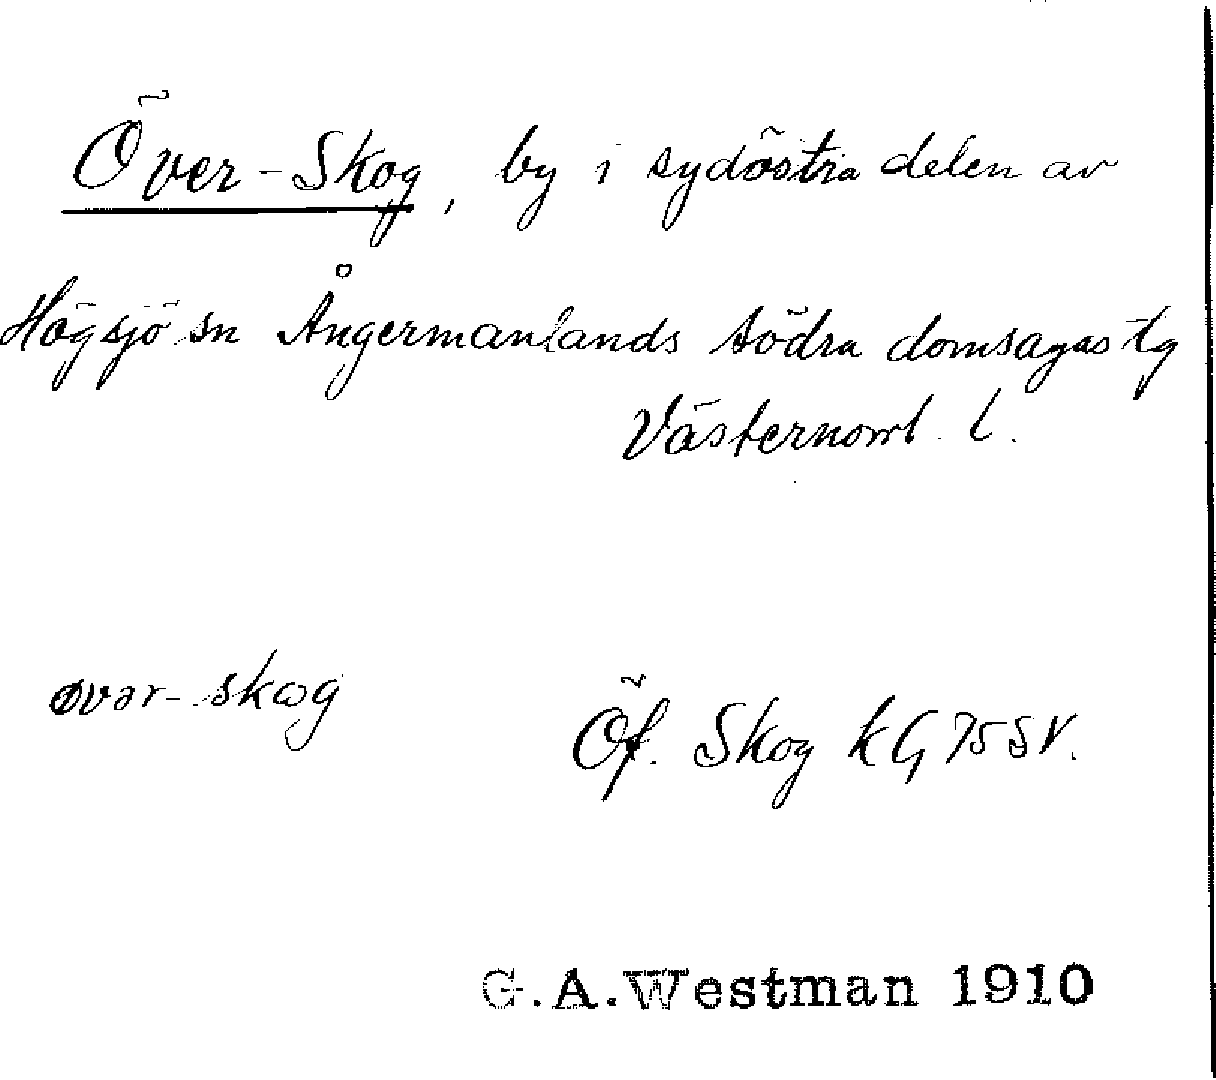 Över-Skog, by i sydöstra delen av
Högsjö sn Ångermanlands södra domsagas tg
Västernorrl. l.
øvər-skog
Öf. Skog kG 75 SV.
G.A.Westman 1910